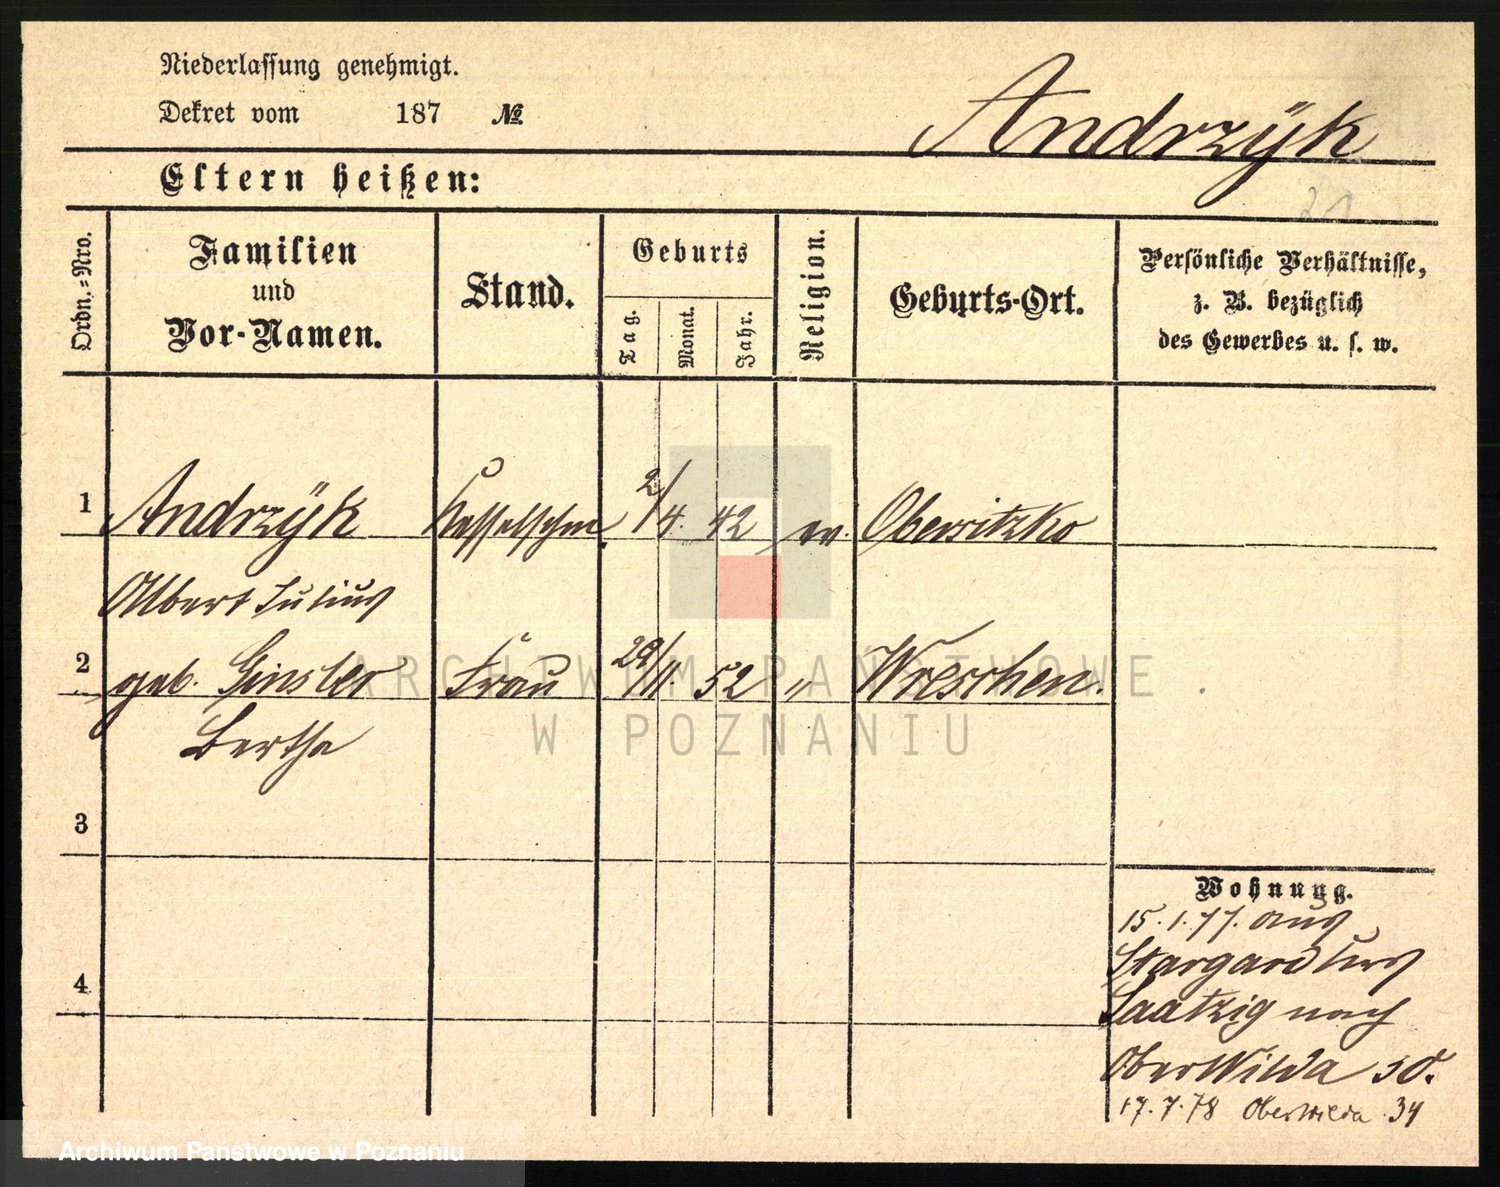 Niederlassung genehmigt.
Dekret vom 187 №
Andrzÿk
Eltern heißen:
21
Ordn.=Nro.
Familien
und
Vor-Namen.
Stand.
Geburts
Tag.
Monat.
Jahr.
Religion.
Geburts-Ort.
Persönliche Verhältnisse,
z. B. bezüglich
des Gewerbes u. s. w.
1 Andrzÿk Kesselschm. 2/4. 42 ev. Obersitzko
Albert Julius
2 geb. Ginsler Frau 29/11. 52 " Wreschen.
Bertha
3
4
Wohnung.
15.1.77. aus
Stargard
Saatzig nach
OberWilda 30.
17.7.78 Oberwilda 34
ARCHIWUM PAŃSTWOWE
W POZNANIU
Archiwum Państwowe w Poznaniu